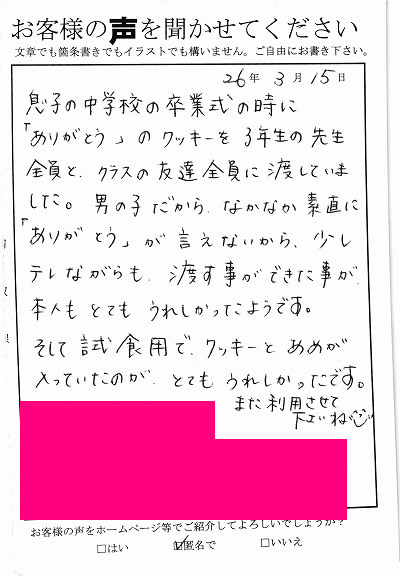 お客様の声を聞かせてください
文章でも箇条書きでもイラストでも構いません。ご自由にお書き下さい。
26年 3月 15日
息子の中学校の卒業式の時に
「ありがとう」のクッキーを3年生の先生
全員と、クラスの友達全員に渡していま
した。男の子だから、なかなか素直に
「ありがとう」が言えないから、少し
テレながらも、渡す事ができた事が、
本人もとてもうれしかったようです。
そして試食用で、クッキーとあめが
入っていたのが、とてもうれしかったです。
また利用させて
下さいね
お客様の声をホームページ等でご紹介してよろしいでしょうか？
□はい ☑匿名で □いいえ